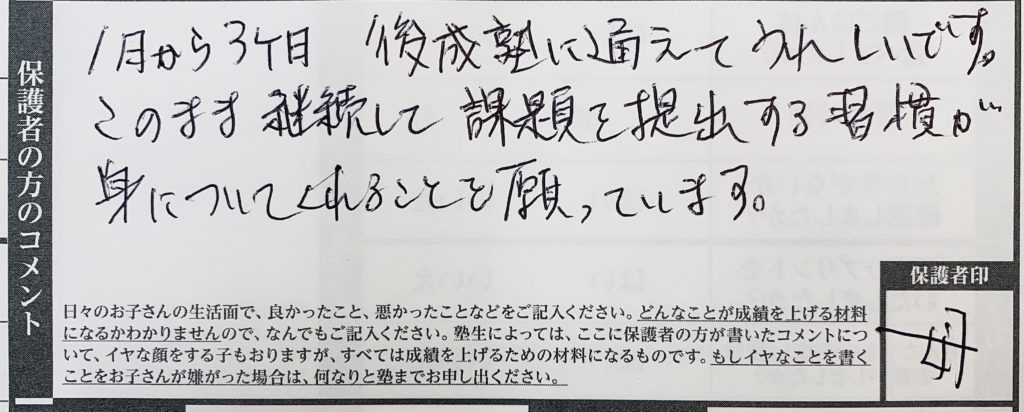 保護者の方のコメント
1月から3ケ月 後成塾に通えてうれしいです。
このまま継続して課題を提出する習慣が
身についてくれることを願っています。
保護者印
日々のお子さんの生活面で、良かったこと、悪かったことなどをご記入ください。どんなことが成績を上げる材料
になるかわかりませんので、なんでもご記入ください。塾生によっては、ここに保護者の方が書いたコメントについ
て、イヤな顔をする子もおりますが、すべては成績を上げるための材料になるものです。もしイヤなことを書く
ことをお子さんが嫌がった場合は、何なりと塾までお申し出ください。